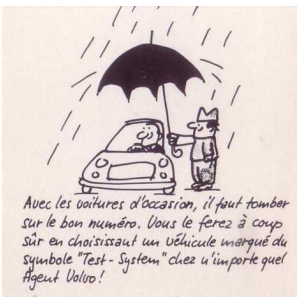 Avec les voitures d'occasion, il faut tomber
sur le bon numéro. Vous le ferez à coup
sûr en choisissant un véhicule marqué du
symbole "Test-System" chez n'importe quel
Agent Volvo!